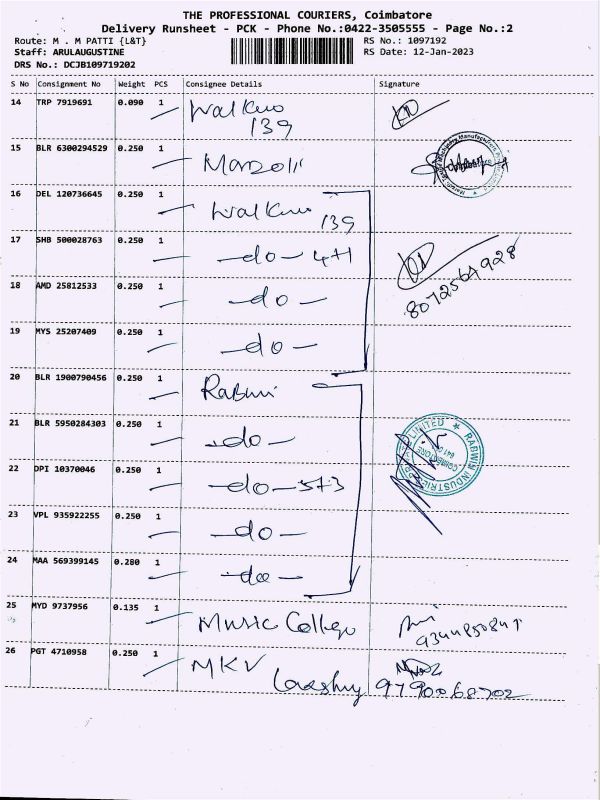 THE PROFESSIONAL COURIERS, Coimbatore
Delivery Runsheet - PCK - Phone No.:0422-3505555 - Page No.:2
Route: M . M PATTI {L&T}
RS No.: 1097192
Staff: ARULAUGUSTINE
RS Date: 12-Jan-2023
DRS No.: DCJB109719202
S No Consignment No Weight PCS Consignee Details Signature
14 TRP 7919691 0.090 1
139
15 BLR 6300294529 0.250 1 Marzoli
16 DEL 120736645 0.250 1
139
17 SHB 500028763 0.250 1 -do- 4H
8072564928
18 AMD 25812533 0.250 1 -do-
19 MYS 25207409 0.250 1 -do-
20 BLR 1900790456 0.250 1 Rabwi
21 BLR 5950284303 0.250 1 -do-
RABWI INDUSTRIES
COIMBATORE
22 DPI 10370046 0.250 1 -do-573
23 VPL 935922255 0.250 1 -do-
24 MAA 569399145 0.280 1 -do-
25 MYD 9737956 0.135 1 Music College
26 PGT 4710958 0.250 1 MKV
9790068702